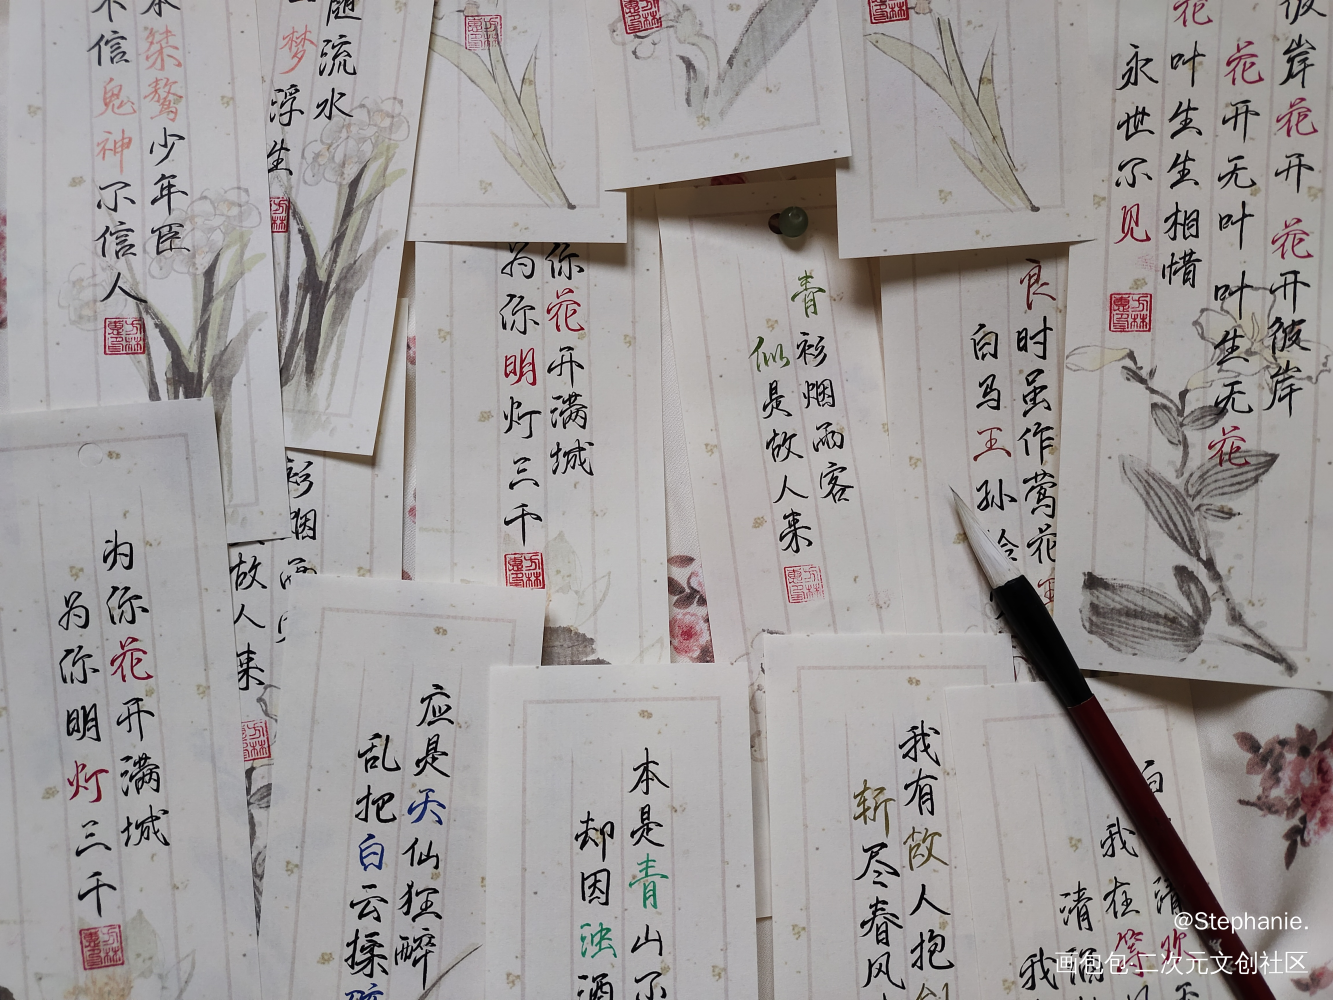 桀骜少年臣
不信鬼神不信人
随流水
梦浮生
你花开满城
为你明灯三千
青衫烟雨客
似是故人来
良时虽作莺花王
白马王孙
彼岸花开 花开彼岸
花开无叶 叶生无花
花叶生生相惜
永世不见
为你花开满城
为你明灯三千
衫烟雨
故人来
应是天仙狂醉
乱把白云揉
本是青山
却因浊酒
我有故人抱剑
斩尽春风
我在
清酒
我
@Stephanie.
画包包-二次元文创社区